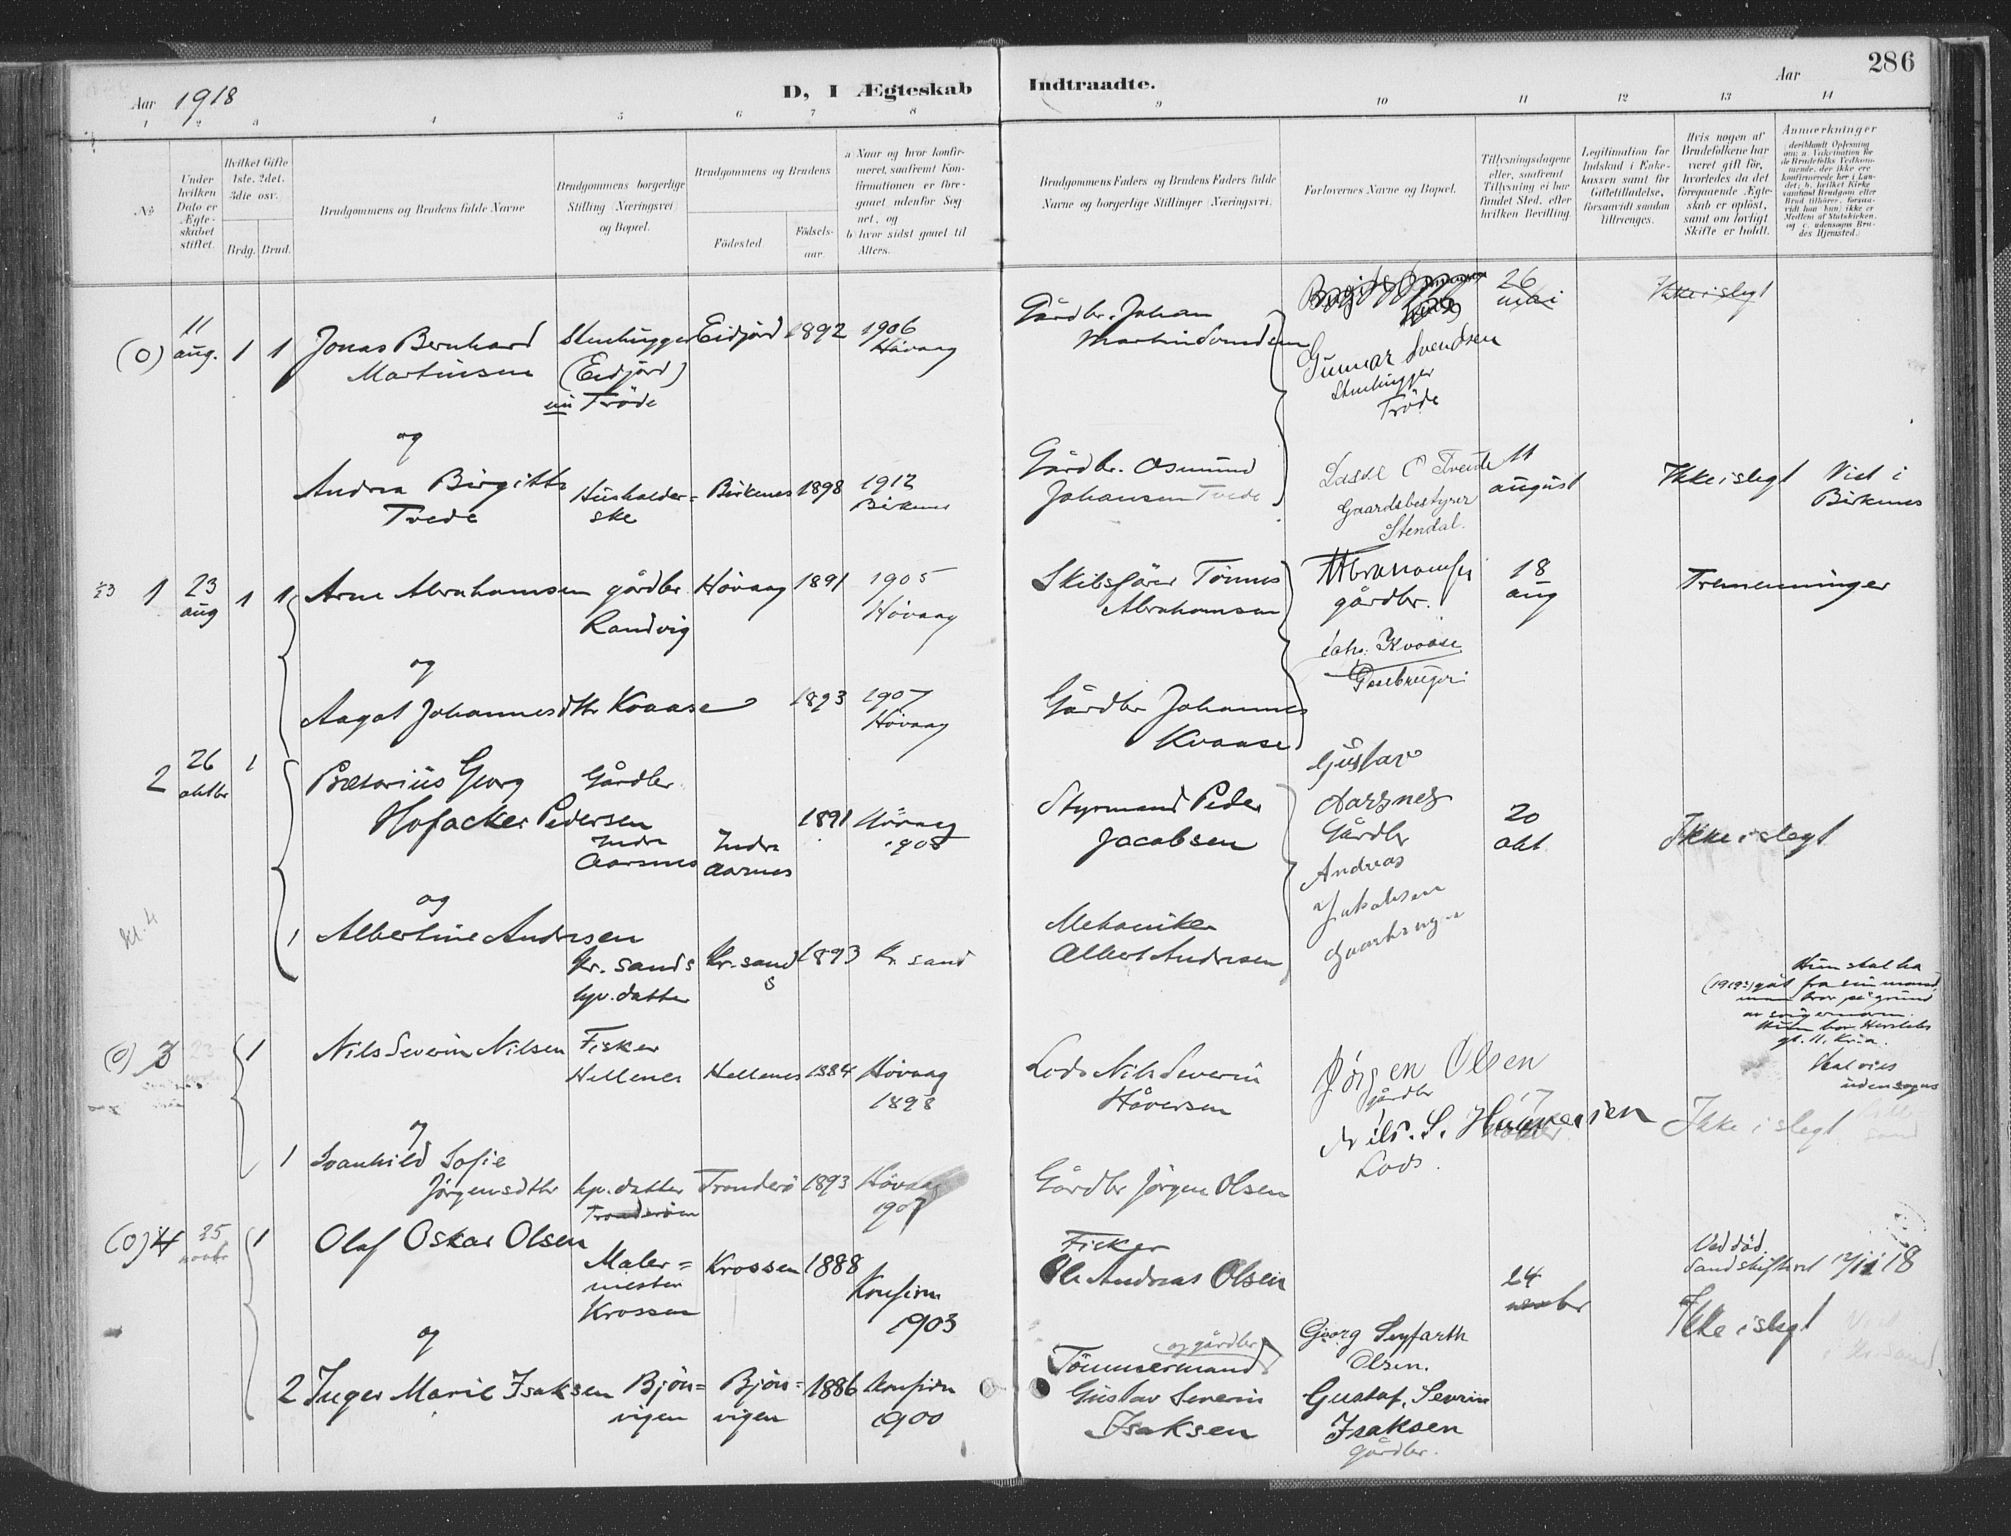 286
Aar 1918
D, I Ægteskab Indtraadte.
Aar
1 2 3 4 5 6 7 8 9 10 11 12 13 14
No
Under hvilken Dato er Ægteskabet stiftet.
Hvilket Gifte 1ste, 2det, 3die osv.
Brdg. Brud.
Brudgommens og Brudens fulde Navne
Brudgommens borgerlige Stilling (Næringsvei) og Bopæl.
Brudgommens og Brudens
Fødested.
Fødselsaar.
a Naar og hvor konfirmeret, saafremt Konfirmationen er foregaaet udenfor Sognet, og
b) hvor sidst gaaet til Alters.
Brudgommens Faders og Brudens Faders fulde Navne og borgerlige Stillinger (Næringsvei).
Forlovernes Navne og Bopæl.
Tillysningsdagene eller, saafremt Tillysning ei har fundet Sted, efter hvilken Bevilling.
Legitimation for Indskud i Enkekassen samt for Giftetilladelse, forsaavidt saadan tiltrænges.
Hvis nogen af Brudefolkene har været gift før, hvorledes da det foregaaende Ægteskab er opløst, samt om lovligt Skifte er holdt.
Anmerkninger
(0) 11 aug. 1 1
Jonas Bernhard
Martinsen
Stenhugger
(Eidjord)
nu Tröde
Eidjord 1892 1906
Hövaag
Gårdbr. Johan
Martin
26
mai
Ikke i slegt
Gunnar Svendsen
Stenhugger
Tröde
og
Andrea Birgitte
Tvede
Husholder=
ske
Birkenes 1898 1912
Birkenes
Gårdbr. Osmund
Johansen Tvede
Lasse O Tveide
Gaardsbestyrer
Stendal.
11
august
Ikke i slegt
Viet i
Birkenes
1 23 aug 1 1
Arne Abrahamsen
gårdbr
Randvig
Hövaag 1891 1905
Hövaag
Skibsfører Tönnes
Abrahamsen
gårdbr.
18
aug
Tremenninger
og
Aagot Johannesdtr Kvaase 1893 1907
Hövaag
Gårdbr Johannes
Kvaase
Joh. Kvaase
2 26 oktbr 1
Prætorius Georg
Hofacker Pedersen
Gårdbr
Indre
Aarsnes
Indre
Aarsnes
1891 Hövaag
1905
Styrmand Peder
Jacobsen
Gustav
Aarsnes
Gårdbr
20
okt
Ikke i slegt
og
kl. 4
1 Albertine Andresen
Kr. sands
hjv. datter
Kr. sand
s
1893 Kr sand
Mekaniker
Albert Andresen
Andreas
Jakobsen
Hun skal ha
(1919:) gåt fra sin mand,
(0) 3 23 1
Nils Severin Nilsen
Fisker
Hellenes
Hellenes 1884 Hövaag
1898
Lods Nils Severin
Håversen
Jörgen Olsen
gårdbr
Nils. S. Haaversen
Lods.
Skal vies
udensogns
Ikke i slegt
og
1 Svanhild Sofie
Jörgensdtr
hjv. datter
Tronderö 1893 Hövaag
1907
Gårdbr Jörgen Olsen
(0) 4 25 novbr 1
Olaf Oskar Olsen
Maler=
mester
Krossen
Krossen 1888
Konfirm
1903
Fisker
Ole Andreas Olsen
24
novbr
Ved död
Ikke i slegt
og
2 Inger Marie Isaksen
Bjön=
vigen
Bjön=
vigen
1886 Konfirm
1900
og gårdbr
Tömmermand
Gustav Severin
Isaksen
Georg Seyfarth
Olsen.
Gustaf. Sevrin
Isaksen
gårdbr.